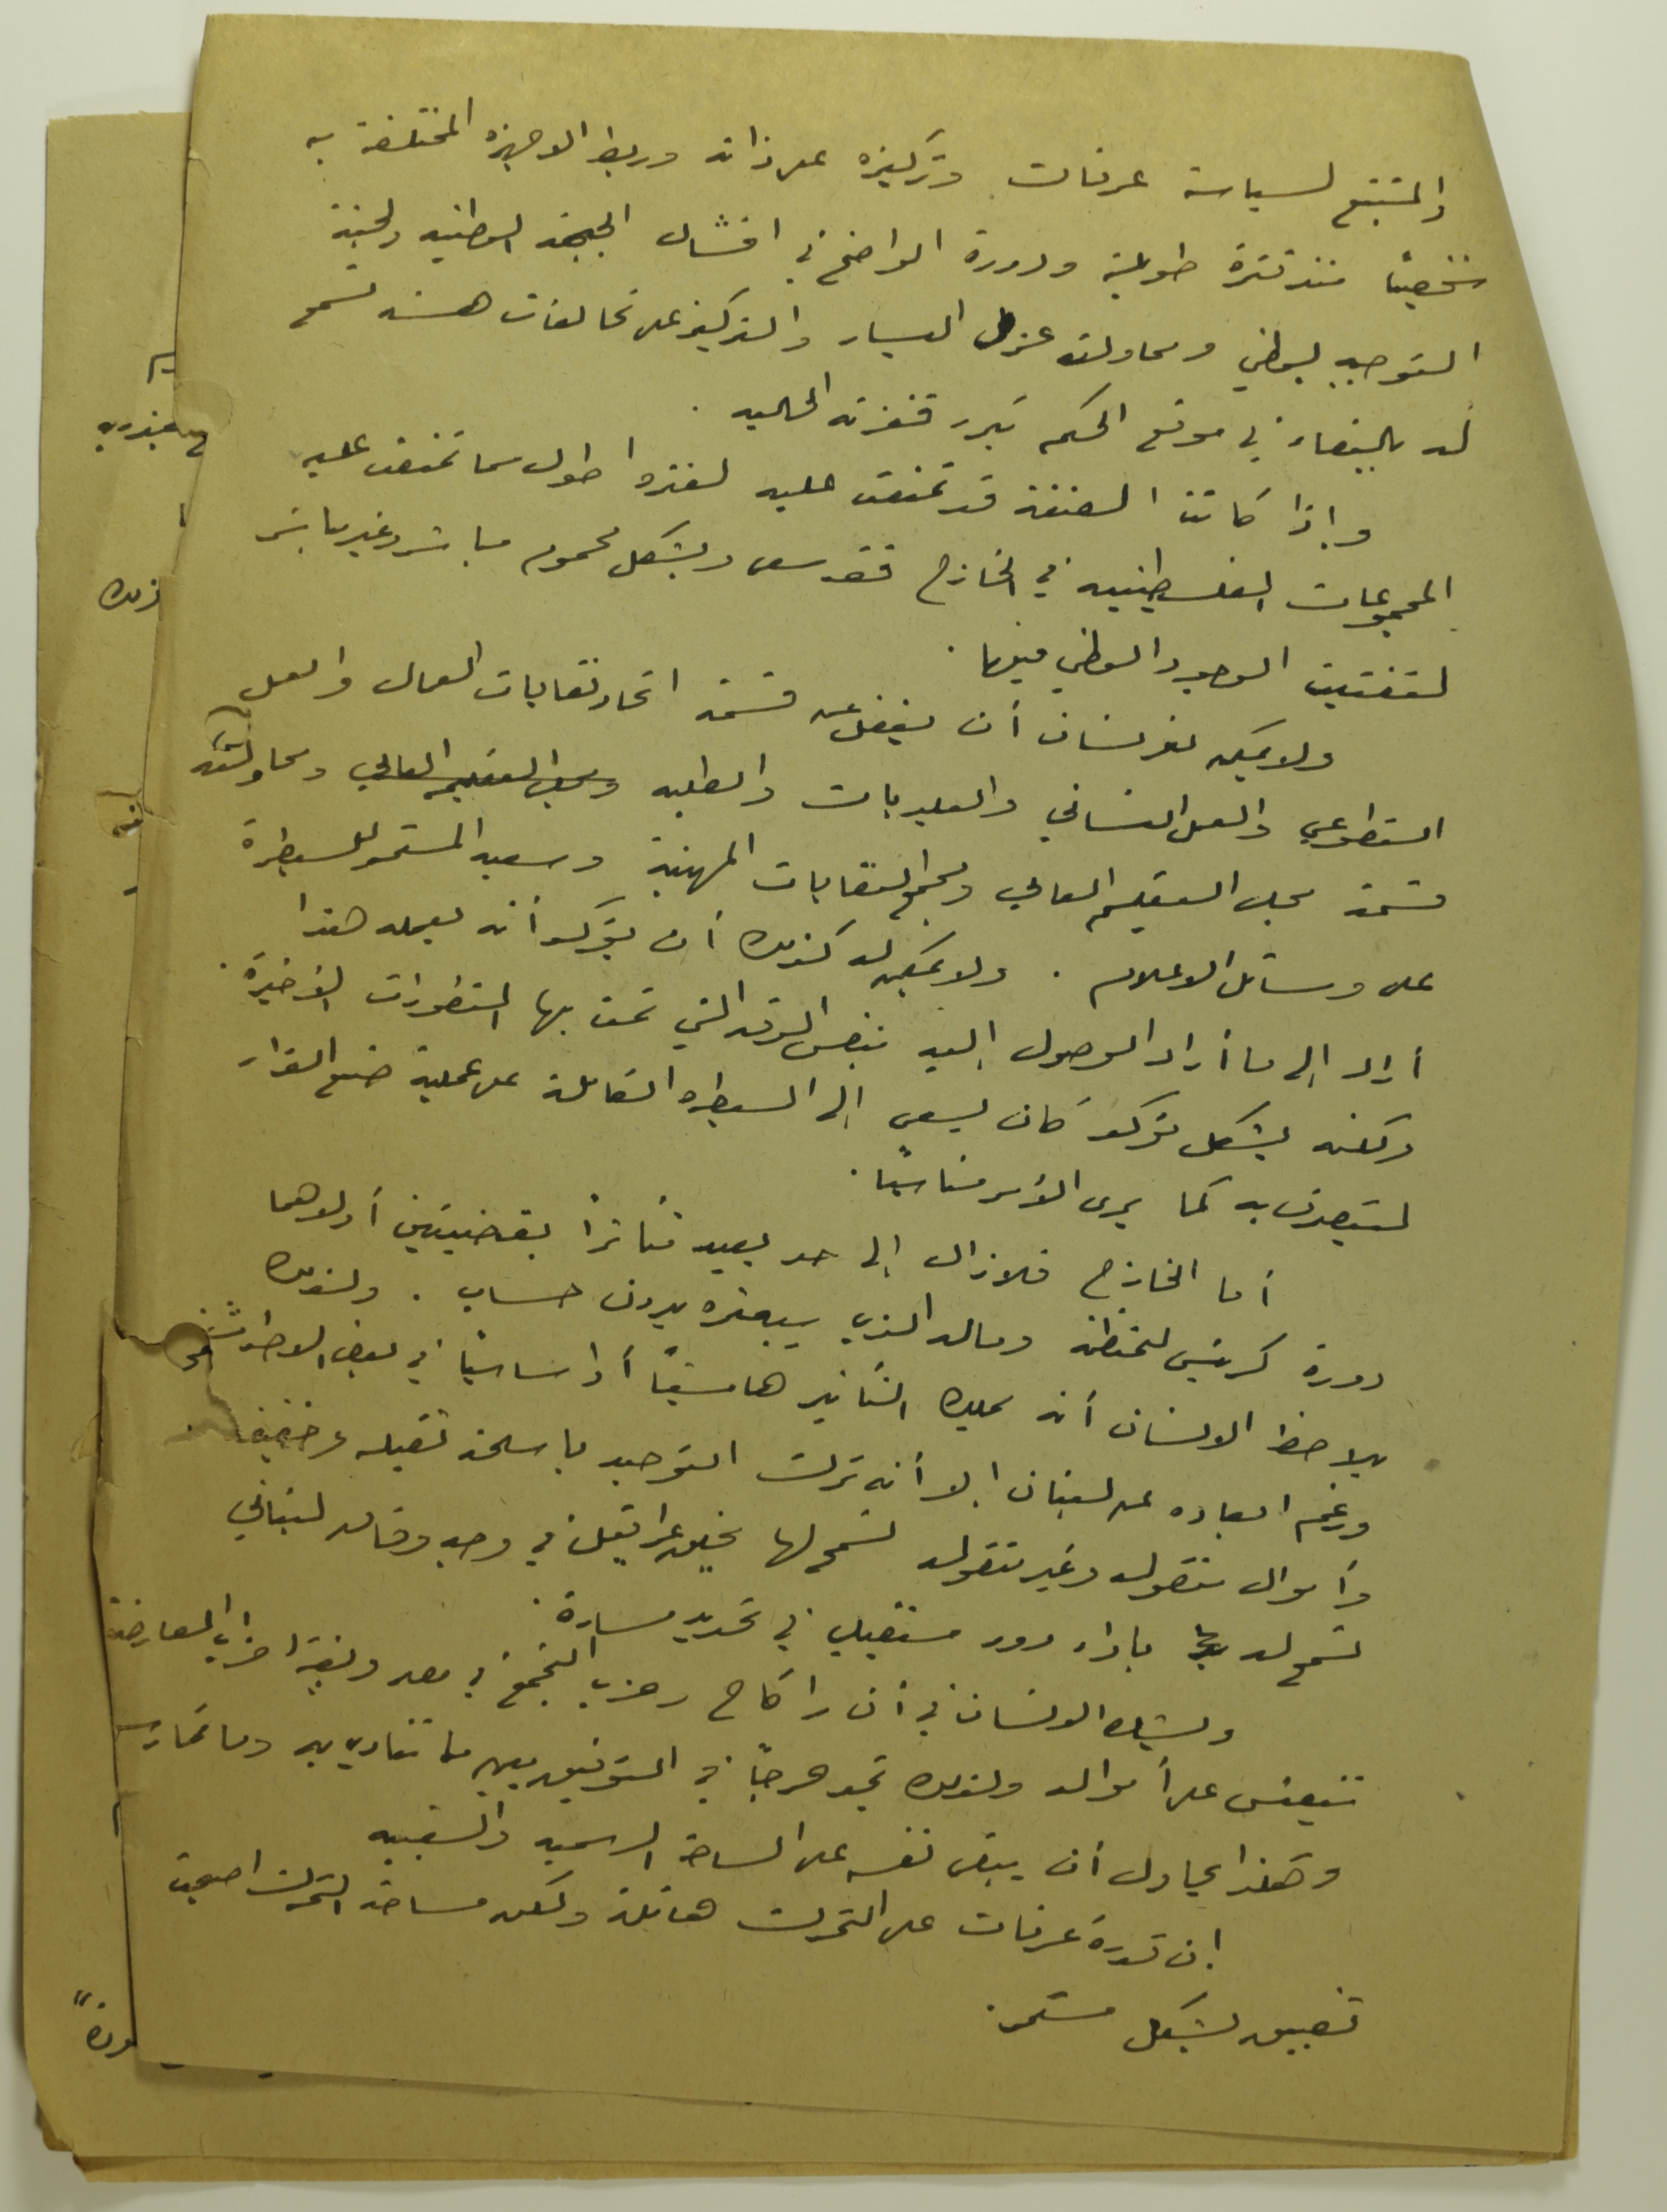 والمتتبع لسياسة عرفات وتركيزه على ذاته وربط الاجهزه المختلفة به
شخصيًا منذ فترة طويلة ودورة الواضح في افشال الجبهة الوطنيه ولجنة
التوجيه الوطني ومحاولته عزل اليسار والتركيز على تحالفات هشه تسمح
له بالبقاء في موقع الحكم تبرر قفزته الحاليه .
واذا كانت الضفة قد تمنعت عليه لفتره اطول مما تمنعت عليه
المجموعات الفلسطينيه في الخارج فقد سعى وبشكل محموم مباشر وغير مباشر
لتفتيت الوجود الوطني فيها .
ولا يمكن لإنسان أن يغفل عن قسمة اتحاد نقابات العمال والعمل
التطوعي والعمل النسائي والبلديات والطلبه ومجلس التعليم العالي ومحاولته
قسمة مجلس التعليم العالي ومجمع النقابات المهنية وسعيه المستمر للسيطرة
على وسائل الاعلام . ولا يمكن له كذلك أن يؤكد أنه بعمله هذا
أراد إلى ما أراد الوصول إليه بنفس الوقد التي تمت بها التطورات الأخيرة .
ولكنه بشكل مؤكد كان يسعى إلى السيطره الكاملة على عملية صنع القرار
لتيصرف به كما يرى الأمر مناسبًا .
أما الخارج فلا زال إلى حد بعيد متأثرًا بقضيتين أولاهما
دورة كرئيس للمنظمة وماله الذي يبعثره بدون حساب . ولذلك
يلاحظ الانسان أنه يملك التأثير هامشيًا أو اساسيًا في بعض الاحوال
ورغم ابعاده عن لبنان إلا أنه ترك التوحيد باسلحة ثقيله وخفيفه .
وأموال منقوله وغير منقوله تسمح لها بخلق عراقيل في وجه وفاق لبناني
تسمح له باداء دور مستقبلي في تحديد مسارة .
ويشك الانسان في أن راكاح وحزب التجمع في مصر وبقية احزاب المعارضة
تتعيش على أمواله ولذلك تجد حرجًا في التوفيق بين ما تنادي به وما تمارسه
وهكذا يحاول أن يبقى نفسه على الساحة الرسميه والشعبيه
إن قدرة عرفات على التحرك هائلة ولكن مساحة التحرك اصبحت
تضيق بشكل مستمر .